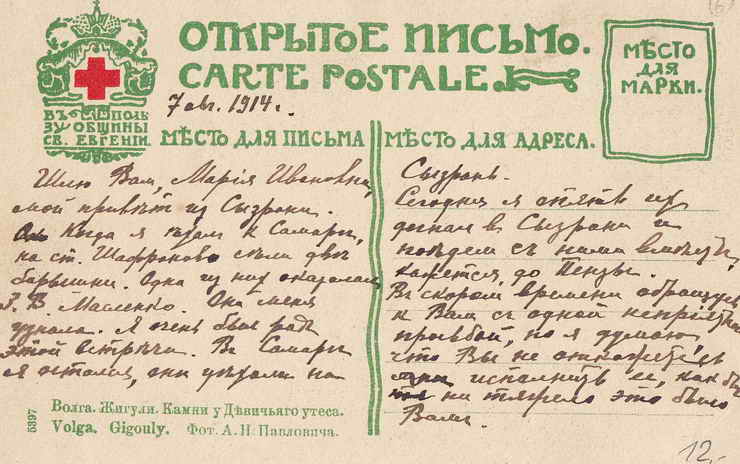 ОТКРЫТОЕ ПИСЬМО.
CARTE POSTALE.
МѢСТО
ДЛЯ
МАРКИ.
ВЪ ПОЛЬ
ЗУ ОБЩИНЫ
СВ. ЕВГЕНІИ.
7 авг. 1914 г.
МѢСТО ДЛЯ ПИСЬМА
МѢСТО ДЛЯ АДРЕСА.
Шлю Вам, Марія Ивановна,
мой привѣт из Сызрани.
Когда я ехал к Самарѣ,
на ст. Шафраново сѣли двѣ
барышни. Одна из них оказалась
В. Масленко. Она меня
узнала. Я очень был рад
этой встрѣчи. В Самарѣ
я остался, они уѣхали на
Сызрань.
Сегодня я опять их
догнал в Сызрани и
поѣдем с ними вмѣстѣ,
кажется, до Пензы.
В скором времени обращусь
к Вам с одной непріятной
просьбой, но я думаю,
что Вы не откажетесь
исполнить ее, как бы
ни тяжело это было
Вам.
5397
Волга. Жигули. Камни у Дѣвичьяго утеса.
Volga. Gigouly. Фот. А. Н. Павловича.
12,-